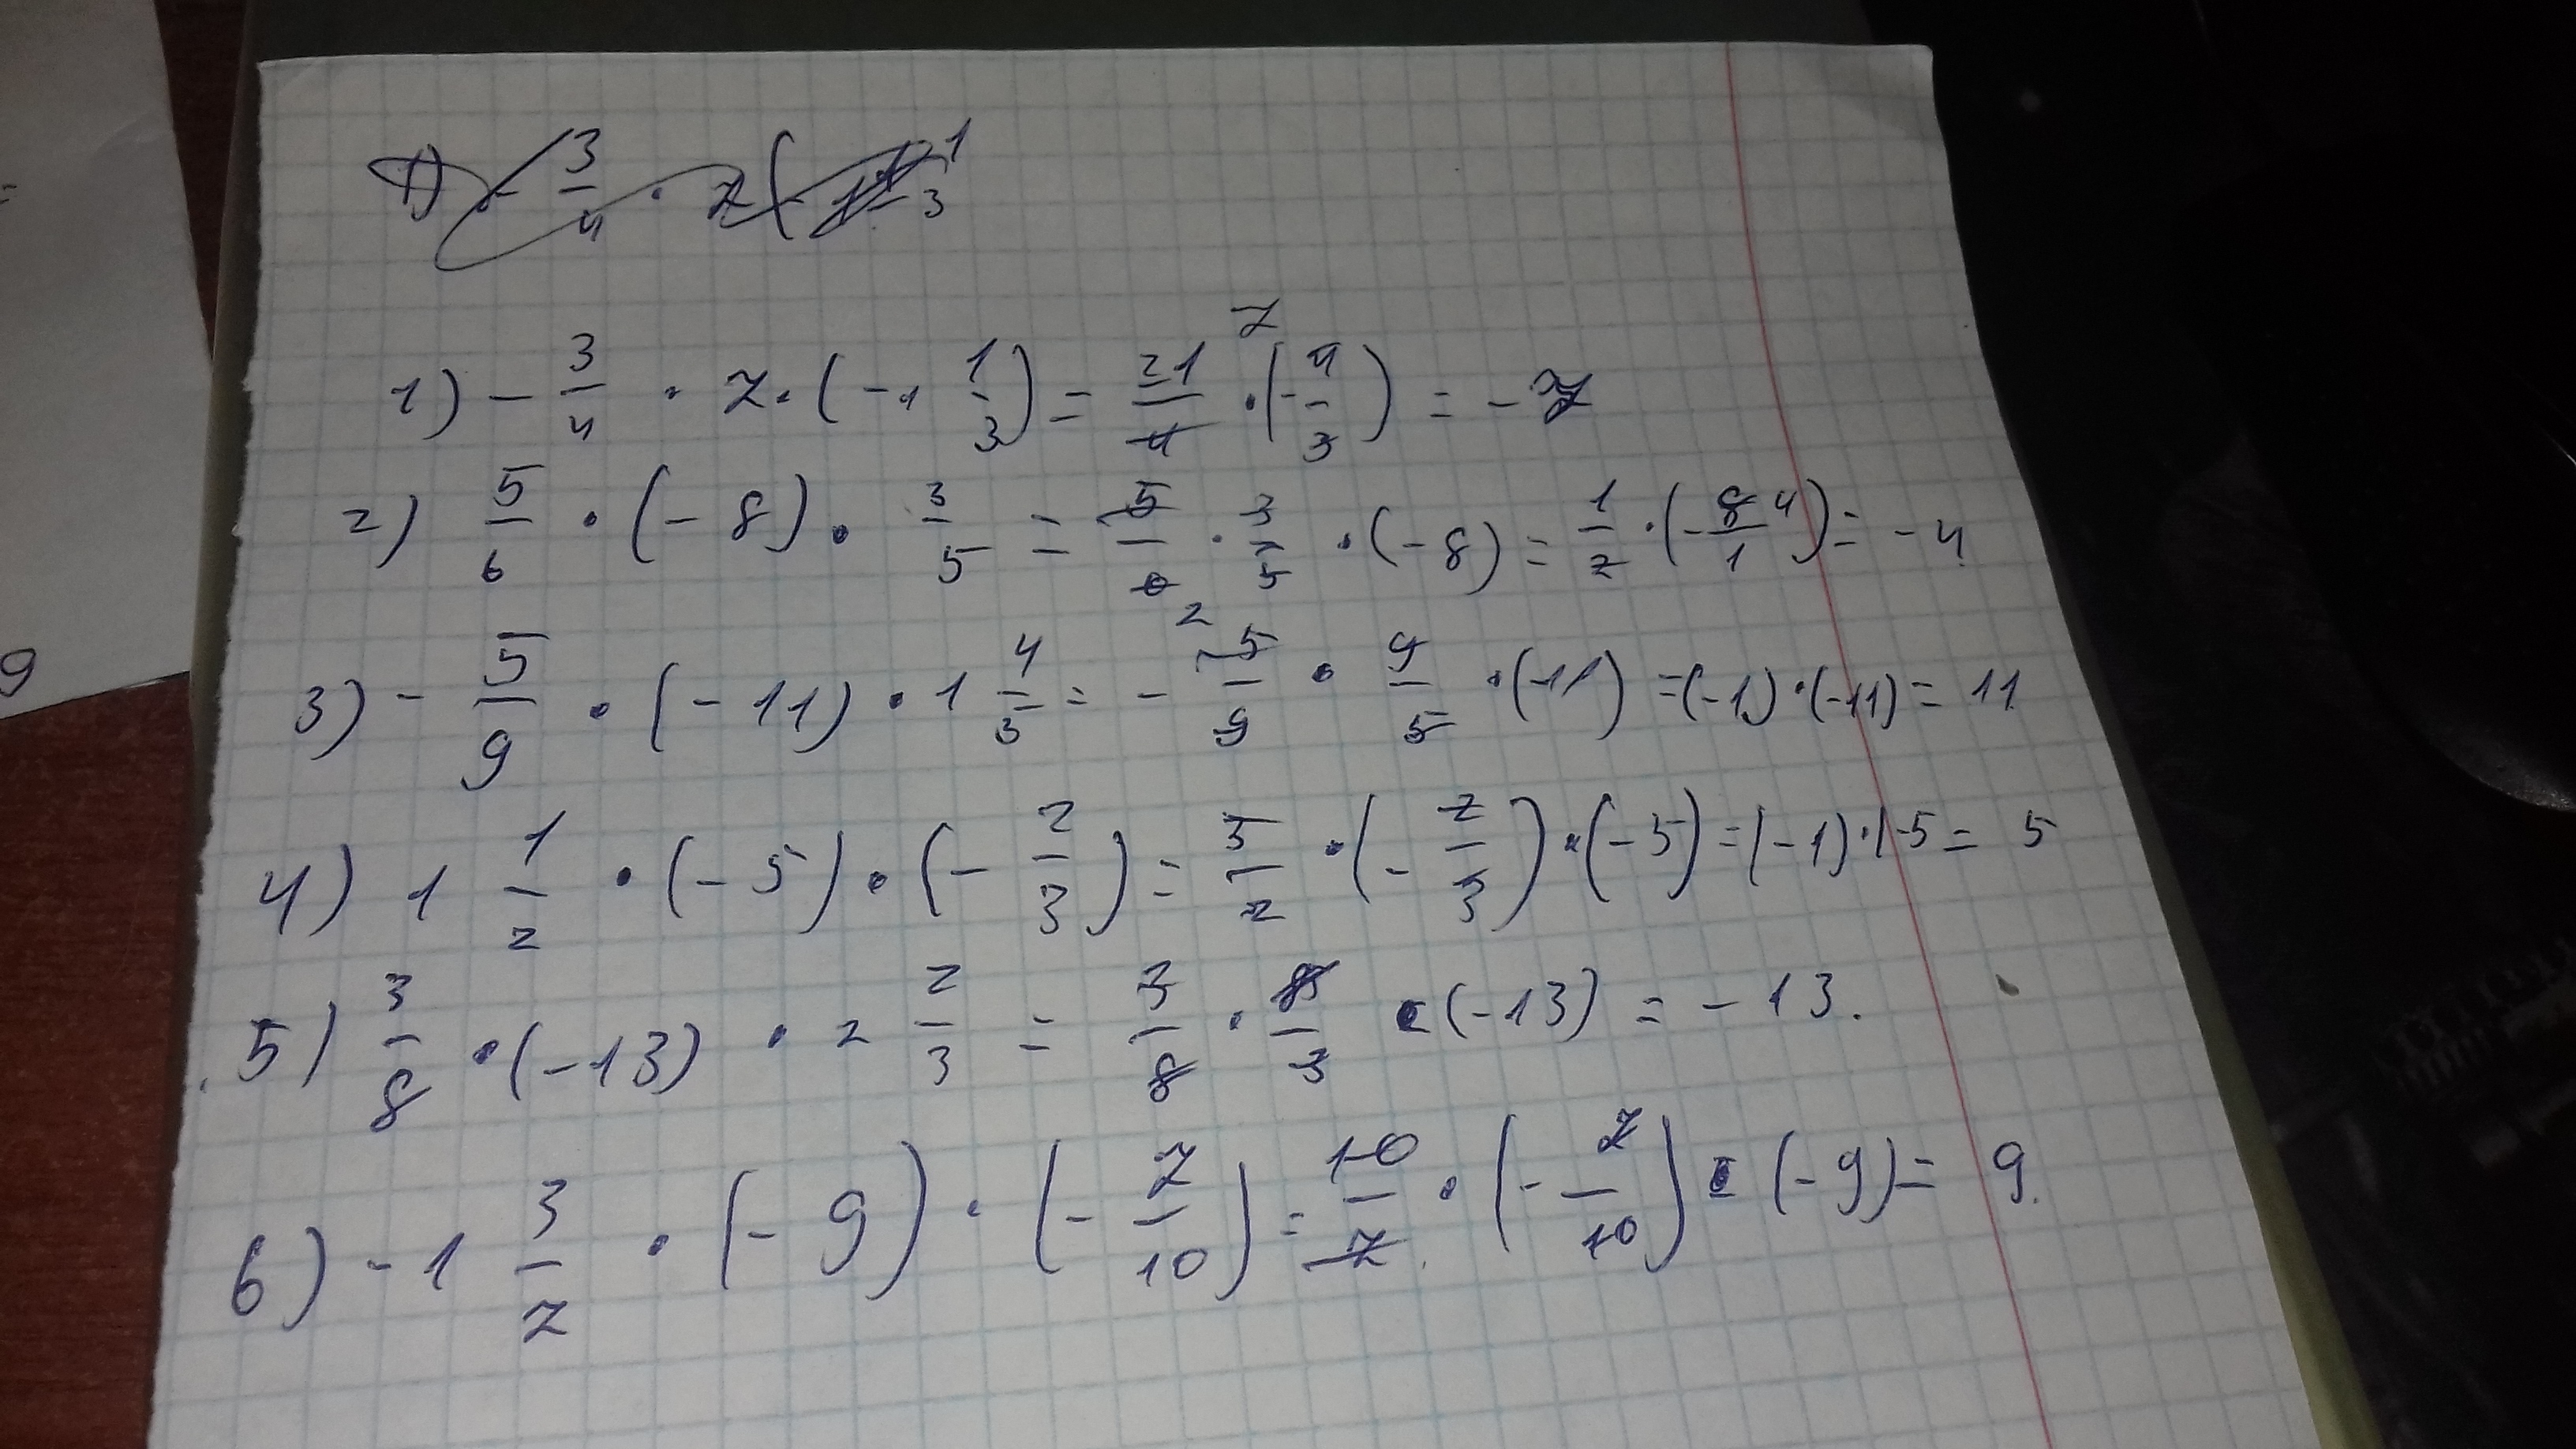 1) - 3/4 · 7 · (-1 1/3) = 21/4 · (- 4/3) = - 7
2) 5/6 · (-8) · 3/5 = 5/6 · 3/5 · (-8) = 1/2 · (- 8/1) = -4
3) - 5/9 · (-11) · 1 4/3 = - 5/9 · 9/5 · (-11) = (-1) · (-11) = 11
4) 1 1/2 · (-5) · (- 2/3) = 3/2 · (- 2/3) · (-5) = (-1) · (-5 = 5
5) 3/8 · (-13) · 2 2/3 = 3/8 · 8/3 · (-13) = -13.
6) -1 3/7 · (-9) · (- 7/10) = 10/7 · (- 7/10) · (-9) = 9.